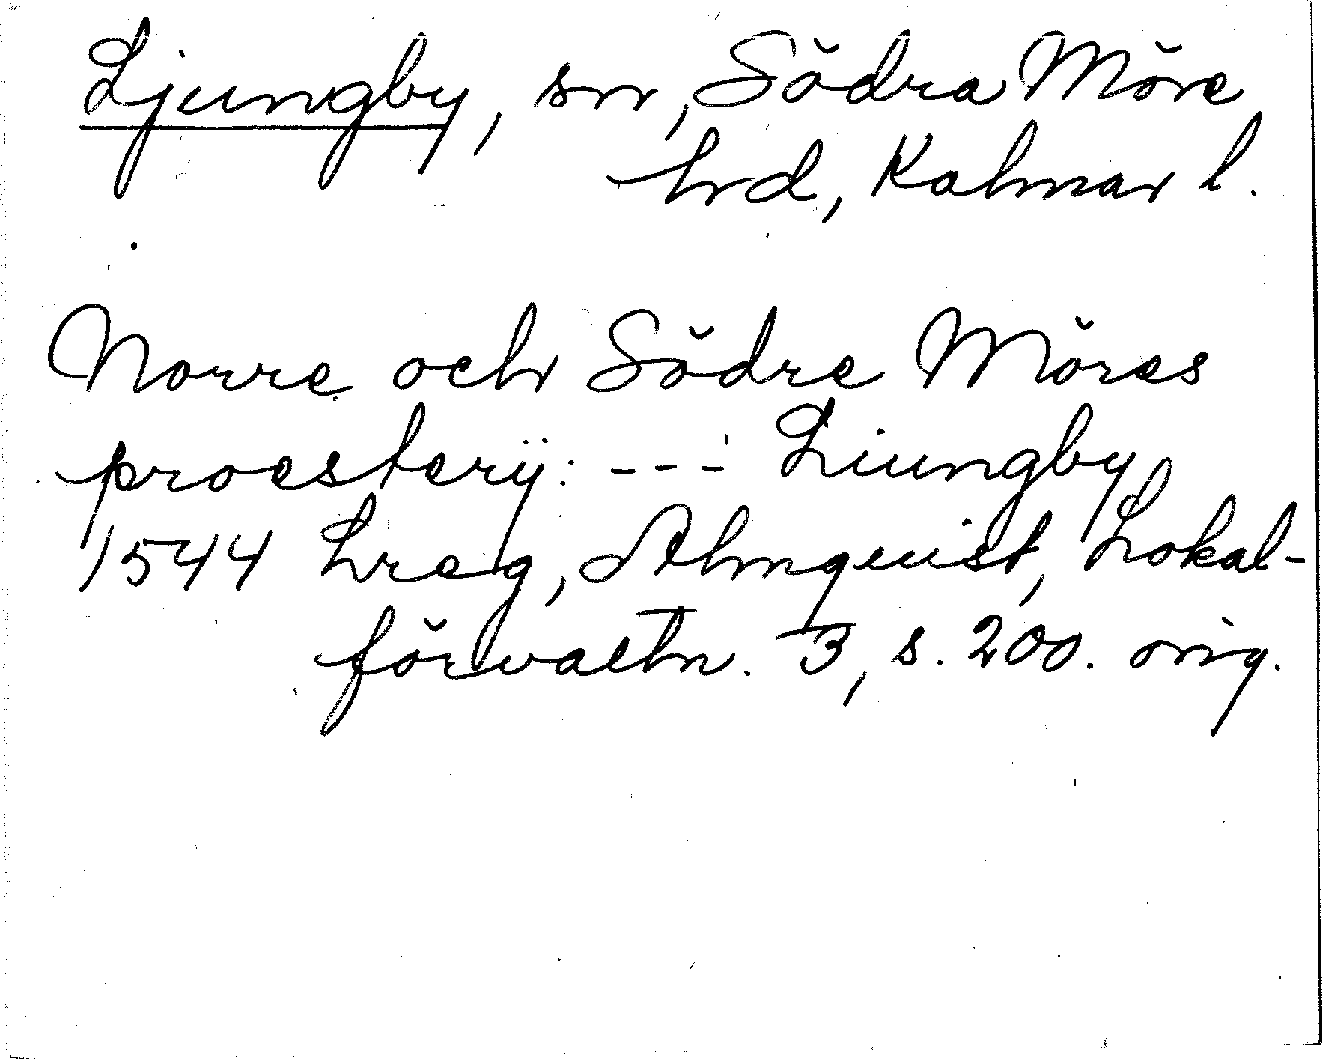 Ljungby, sn, Södra Möre
hrd, Kalmar l.
Norre och Södre Möres
proesterÿ: --- Liungby
1544 Lreg, Almquist, Lokal-
förvaltn. 3, s. 200. orig.